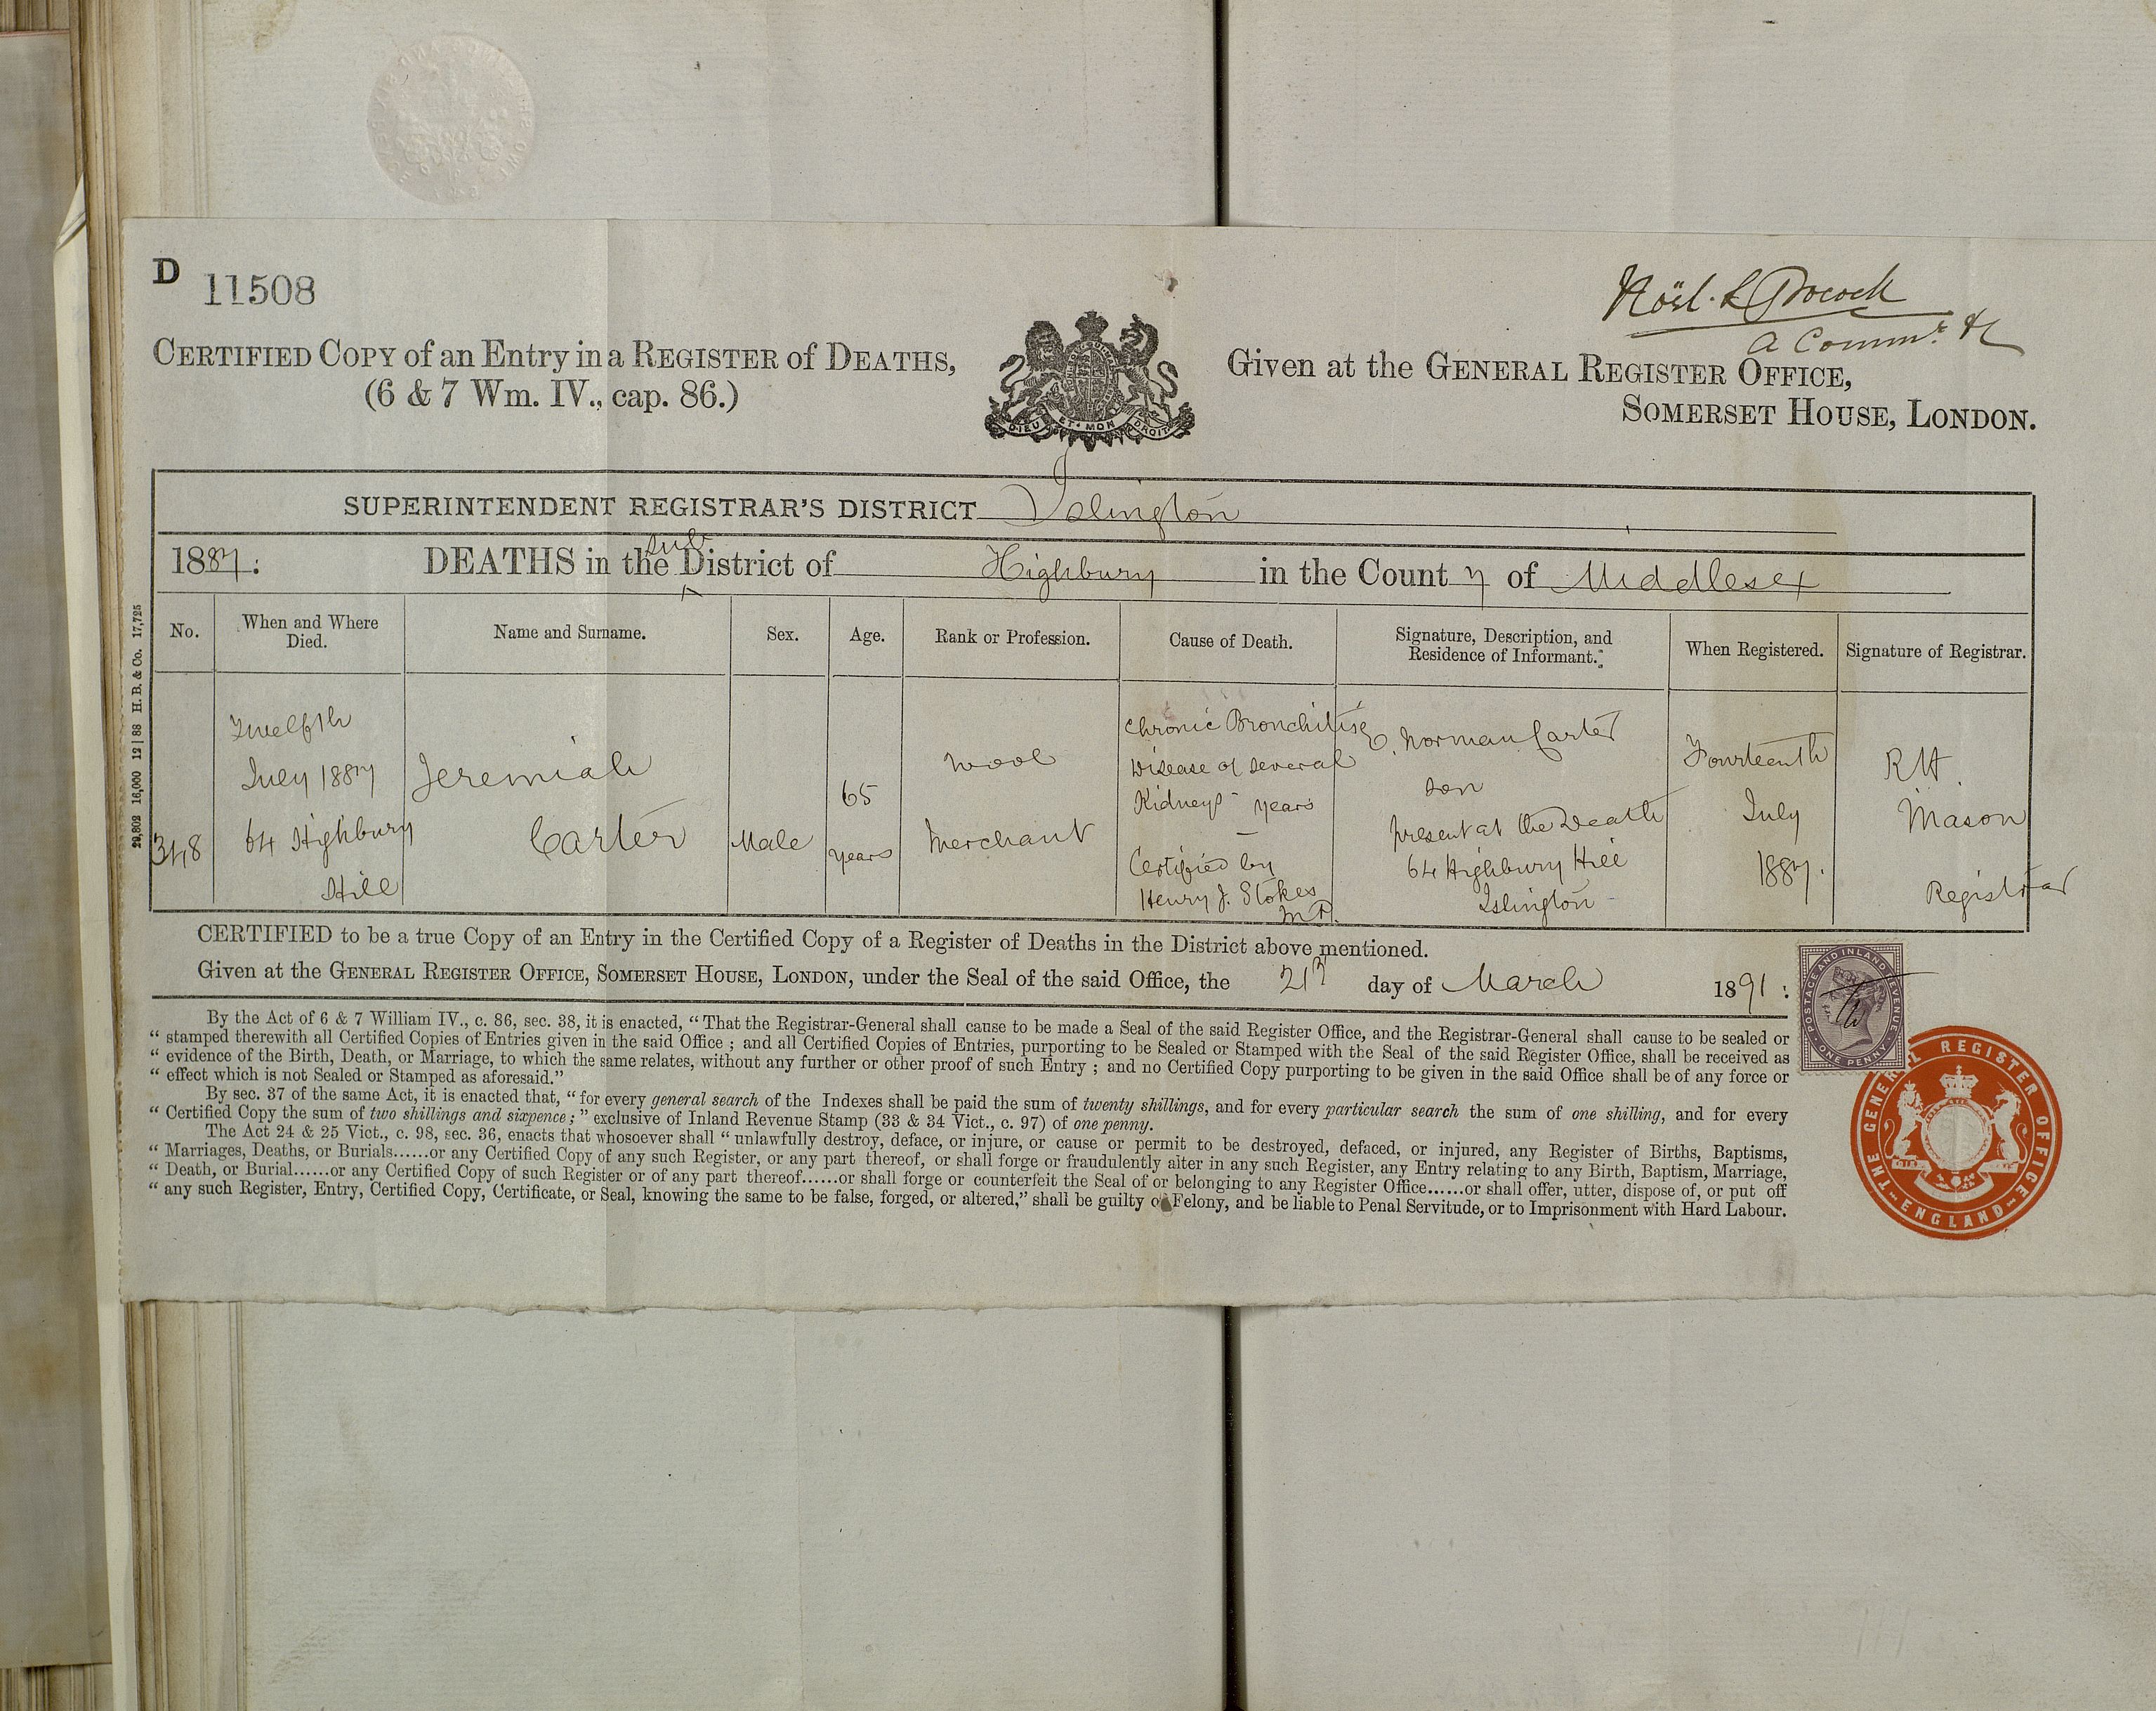 D 11508
A Comm.r &c
CERTIFIED COPY of an Entry in a REGISTER of DEATHS,
(6 & 7 Wm. IV., cap. 86.)
DIEU ET MON DROIT
Given at the GENERAL REGISTER OFFICE,
SOMERSET HOUSE, LONDON.
SUPERINTENDENT REGISTRAR'S DISTRICT Islington
1887. DEATHS in the sub District of Highbury in the County of Middlesex
No.
When and Where
Died.
Name and Surname.
Sex.
Age.
Rank or Profession.
Cause of Death.
Signature, Description, and
Residence of Informant.
When Registered.
Signature of Registrar.
348
Twelfth
July 1887
64 Highbury
Hill
Jeremiah
Carter
Male
65
years
Wool
Merchant
Chronic Bronchitis &
Disease of several
Kidneys years
Certified by
Henry J. Stokes
M.D.
Norman Carter
son
present at the Death
64 Highbury Hill
Islington
Fourteenth
July
1887.
R H
Mason
Registrar
29,802 16,000 12 | 88 H. B. & Co. 17,725
CERTIFIED to be a true Copy of an Entry in the Certified Copy of a Register of Deaths in the District above mentioned.
Given at the GENERAL REGISTER OFFICE, SOMERSET HOUSE, LONDON, under the Seal of the said Office, the 21st day of March 1891:
By the Act of 6 & 7 William IV., c. 86, sec. 38, it is enacted, “That the Registrar-General shall cause to be made a Seal of the said Register Office, and the Registrar-General shall cause to be sealed or
“ stamped therewith all Certified Copies of Entries given in the said Office ; and all Certified Copies of Entries, purporting to be Sealed or Stamped with the Seal of the said Register Office, shall be received as
“ evidence of the Birth, Death, or Marriage, to which the same relates, without any further or other proof of such Entry ; and no Certified Copy purporting to be given in the said Office shall be of any force or
“ effect which is not Sealed or Stamped as aforesaid.”
By sec. 37 of the same Act, it is enacted that, “for every general search of the Indexes shall be paid the sum of twenty shillings, and for every particular search the sum of one shilling, and for every
“ Certified Copy the sum of two shillings and sixpence ;” exclusive of Inland Revenue Stamp (33 & 34 Vict., c. 97) of one penny.
The Act 24 & 25 Vict., c. 98, sec. 36, enacts that whosoever shall “unlawfully destroy, deface, or injure, or cause or permit to be destroyed, defaced, or injured, any Register of Births, Baptisms,
“ Marriages, Deaths, or Burials......or any Certified Copy of any such Register, or any part thereof, or shall forge or fraudulently alter in any such Register, any Entry relating to any Birth, Baptism, Marriage,
“ Death, or Burial......or any Certified Copy of such Register or of any part thereof......or shall forge or counterfeit the Seal of or belonging to any Register Office......or shall offer, utter, dispose of, or put off
“ any such Register, Entry, Certified Copy, Certificate, or Seal, knowing the same to be false, forged, or altered,” shall be guilty of Felony, and be liable to Penal Servitude, or to Imprisonment with Hard Labour.
POSTAGE AND INLAND REVENUE
ONE PENNY
THE GENERAL REGISTER OFFICE
ENGLAND